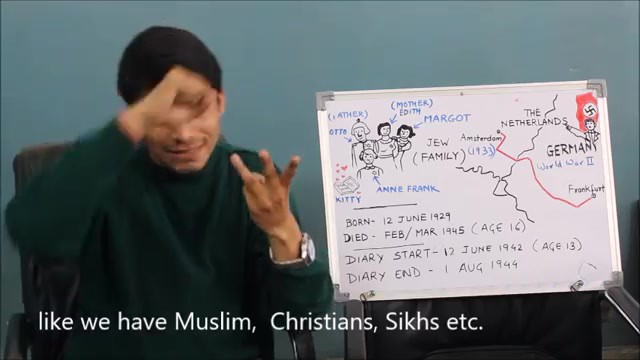 (FATHER)
OTTO
(MOTHER)
EDITH
MARGOT
JEW
(FAMILY)
ANNE FRANK
KITTY
THE
NETHERLANDS
Amsterdam
(1933)
GERMANY
World War II
Frankfurt
BORN- 12 JUNE 1929
DIED - FEB/ MAR 1945 (AGE 16)
DIARY START- 12 JUNE 1942 (AGE 13)
DIARY END - 1 AUG 1944
like we have Muslim, Christians, Sikhs etc.